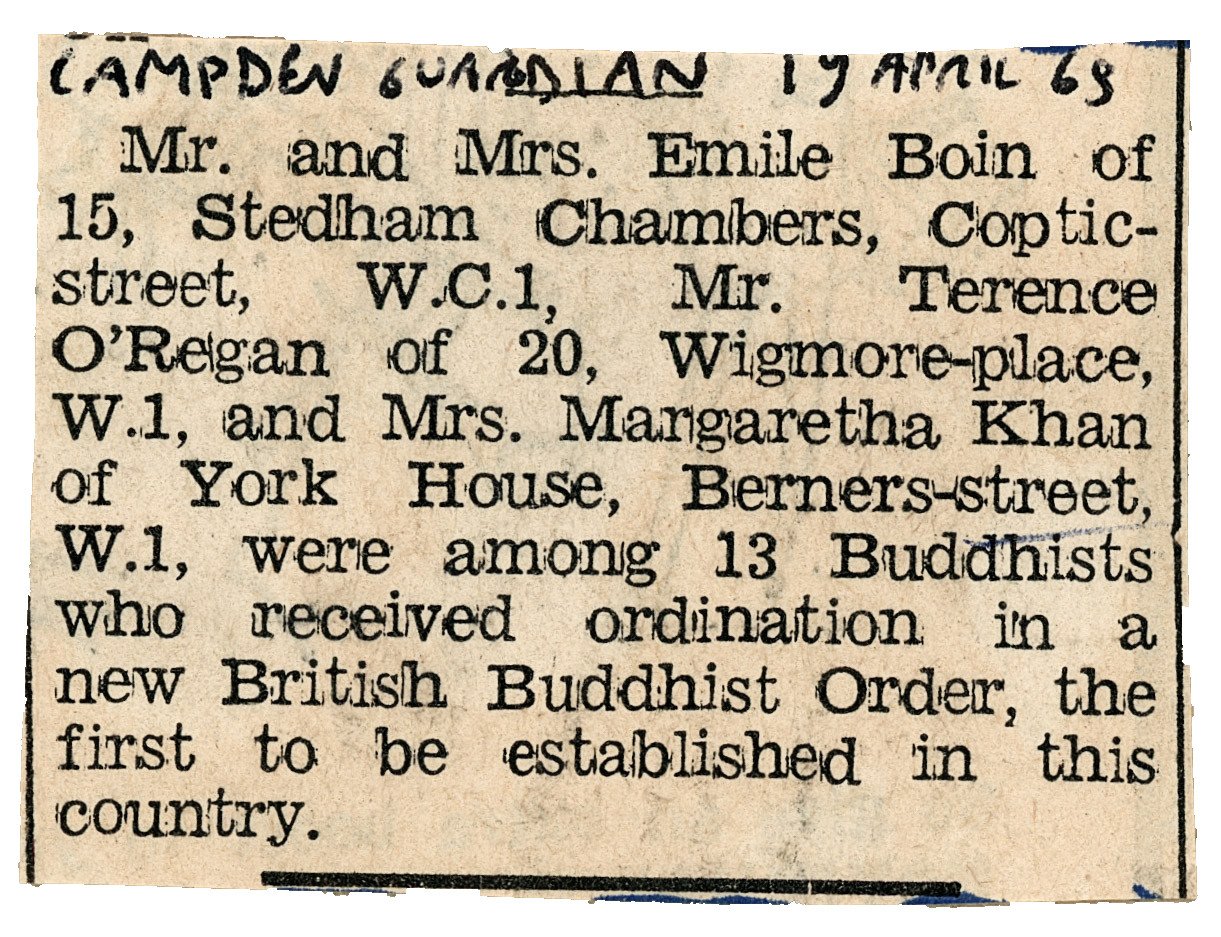 CAMPDEN GUARDIAN 19 APRIL 68
Mr. and Mrs. Emile Boin of
15, Stedham Chambers, Coptic-
street, W.C.1, Mr. Terence
O'Regan of 20, Wigmore-place,
W.1, and Mrs. Margaretha Khan
of York House, Berners-street,
W.1, were among 13 Buddhists
who received ordination in a
new British Buddhist Order, the
first to be established in this
country.